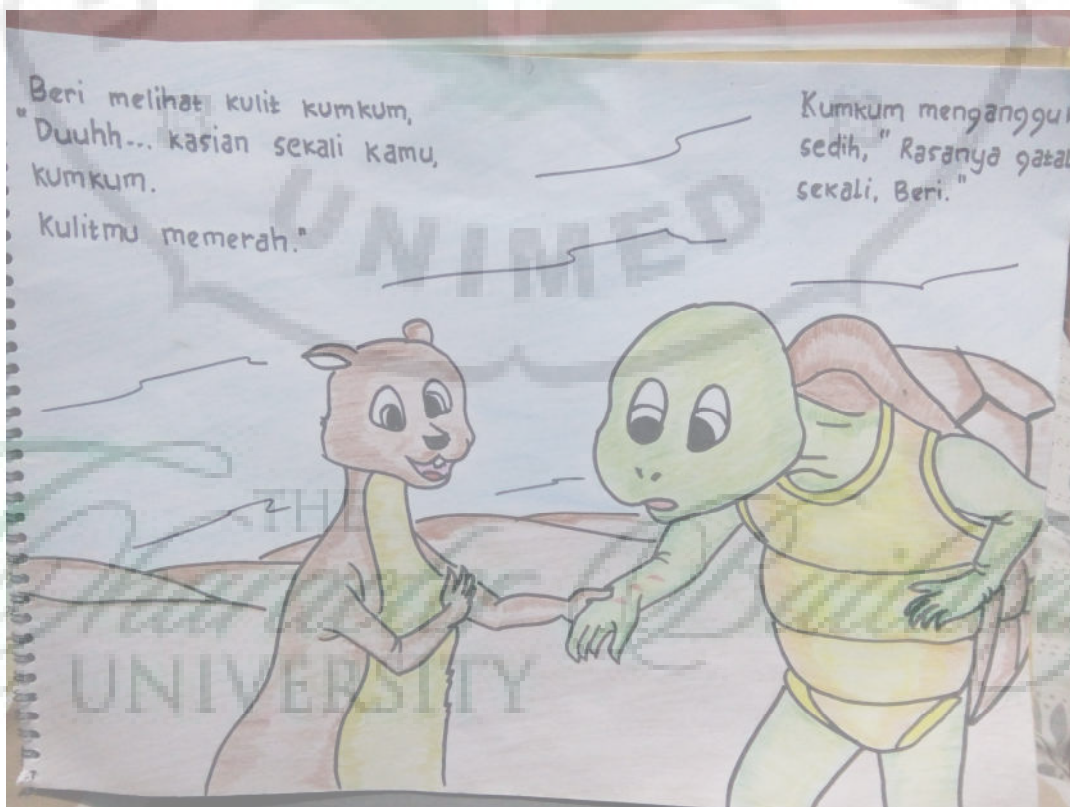 Beri melihat kulit kumkum,
"Duuhh... kasian sekali kamu,
kumkum.
Kulitmu memerah."
Kumkum menganggu
sedih, "Rasanya gatal
sekali, Beri."
UNIMED
THE
UNIVERSITY